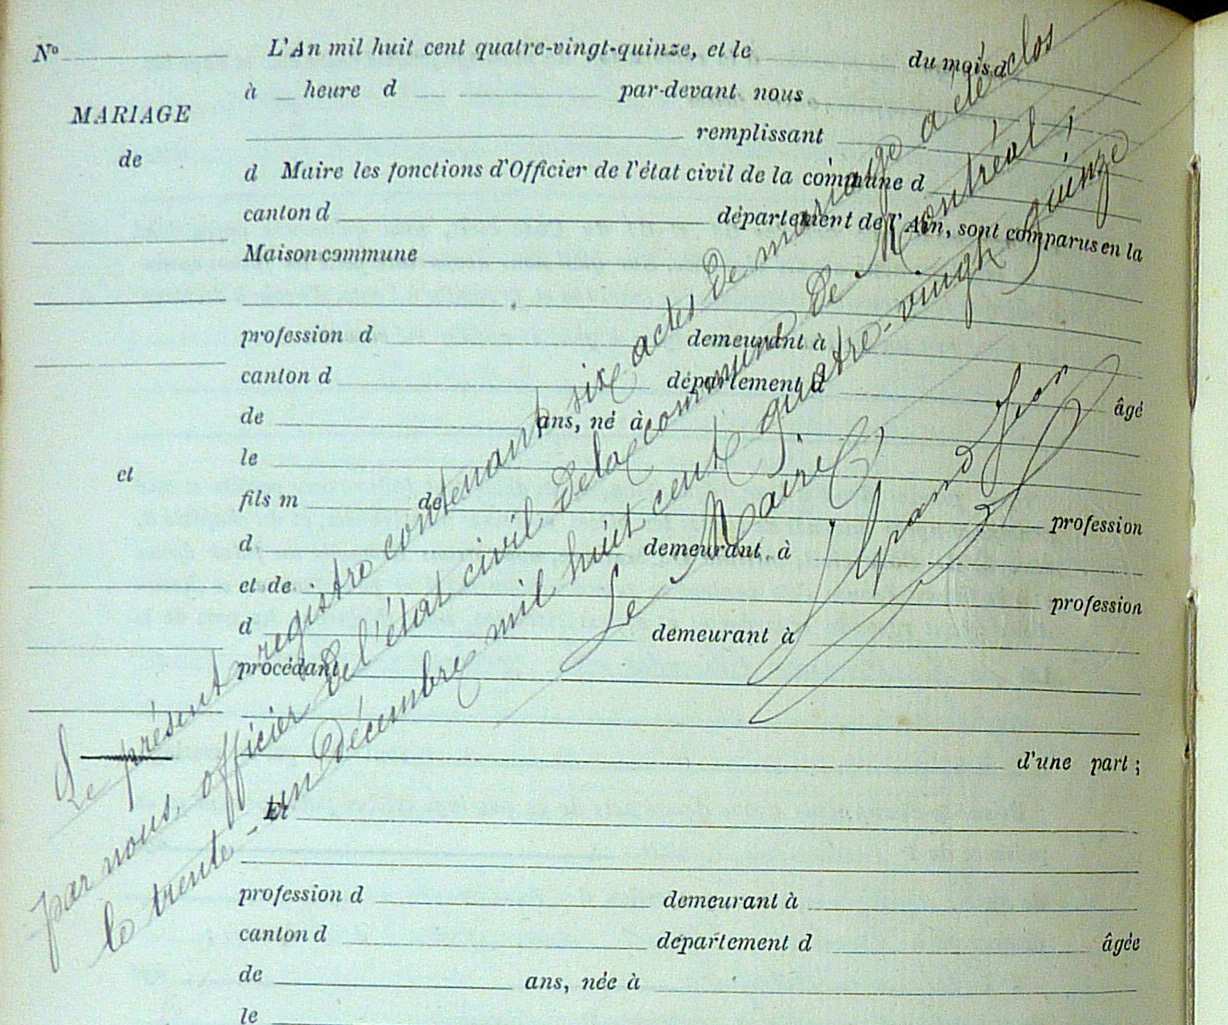 N°
MARIAGE
de
et
L'An mil huit cent quatre-vingt-quinze, et le du mois d
à heure d par-devant nous
remplissant
d Maire les fonctions d'Officier de l'état civil de la commune d
canton d département de l'Ain, sont comparus en la
Maison commune
profession d demeurant à
canton d département d âgé
de ans, né à
le
fils m de profession
d demeurant à
et de profession
d demeurant à
procédant
d'une part ;
Et
profession d demeurant à
canton d département d âgée
de ans, née à
le
Le présent registre contenant six actes de mariage a été clos
par nous, officier de l'état civil de la commune de Montréal,
le trente-un décembre mil huit cent quatre-vingt quinze
Le Maire,
Grandjean